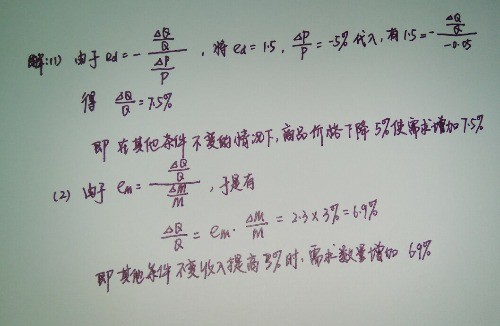 解:(1) 由于 ed = - (ΔQ/Q)/(ΔP/P) , 将 ed = 1.5, ΔP/P = -5% 代入, 有 1.5 = - (ΔQ/Q)/(-0.05)
得 ΔQ/Q = 7.5%
即在其他条件不变的情况下, 商品价格下降 5% 使需求增加 7.5%
(2) 由于 em = (ΔQ/Q)/(ΔM/M) , 于是有
ΔQ/Q = em · ΔM/M = 2.3 × 3% = 6.9%
即其他条件不变收入提高 3% 时, 需求数量增加 6.9%